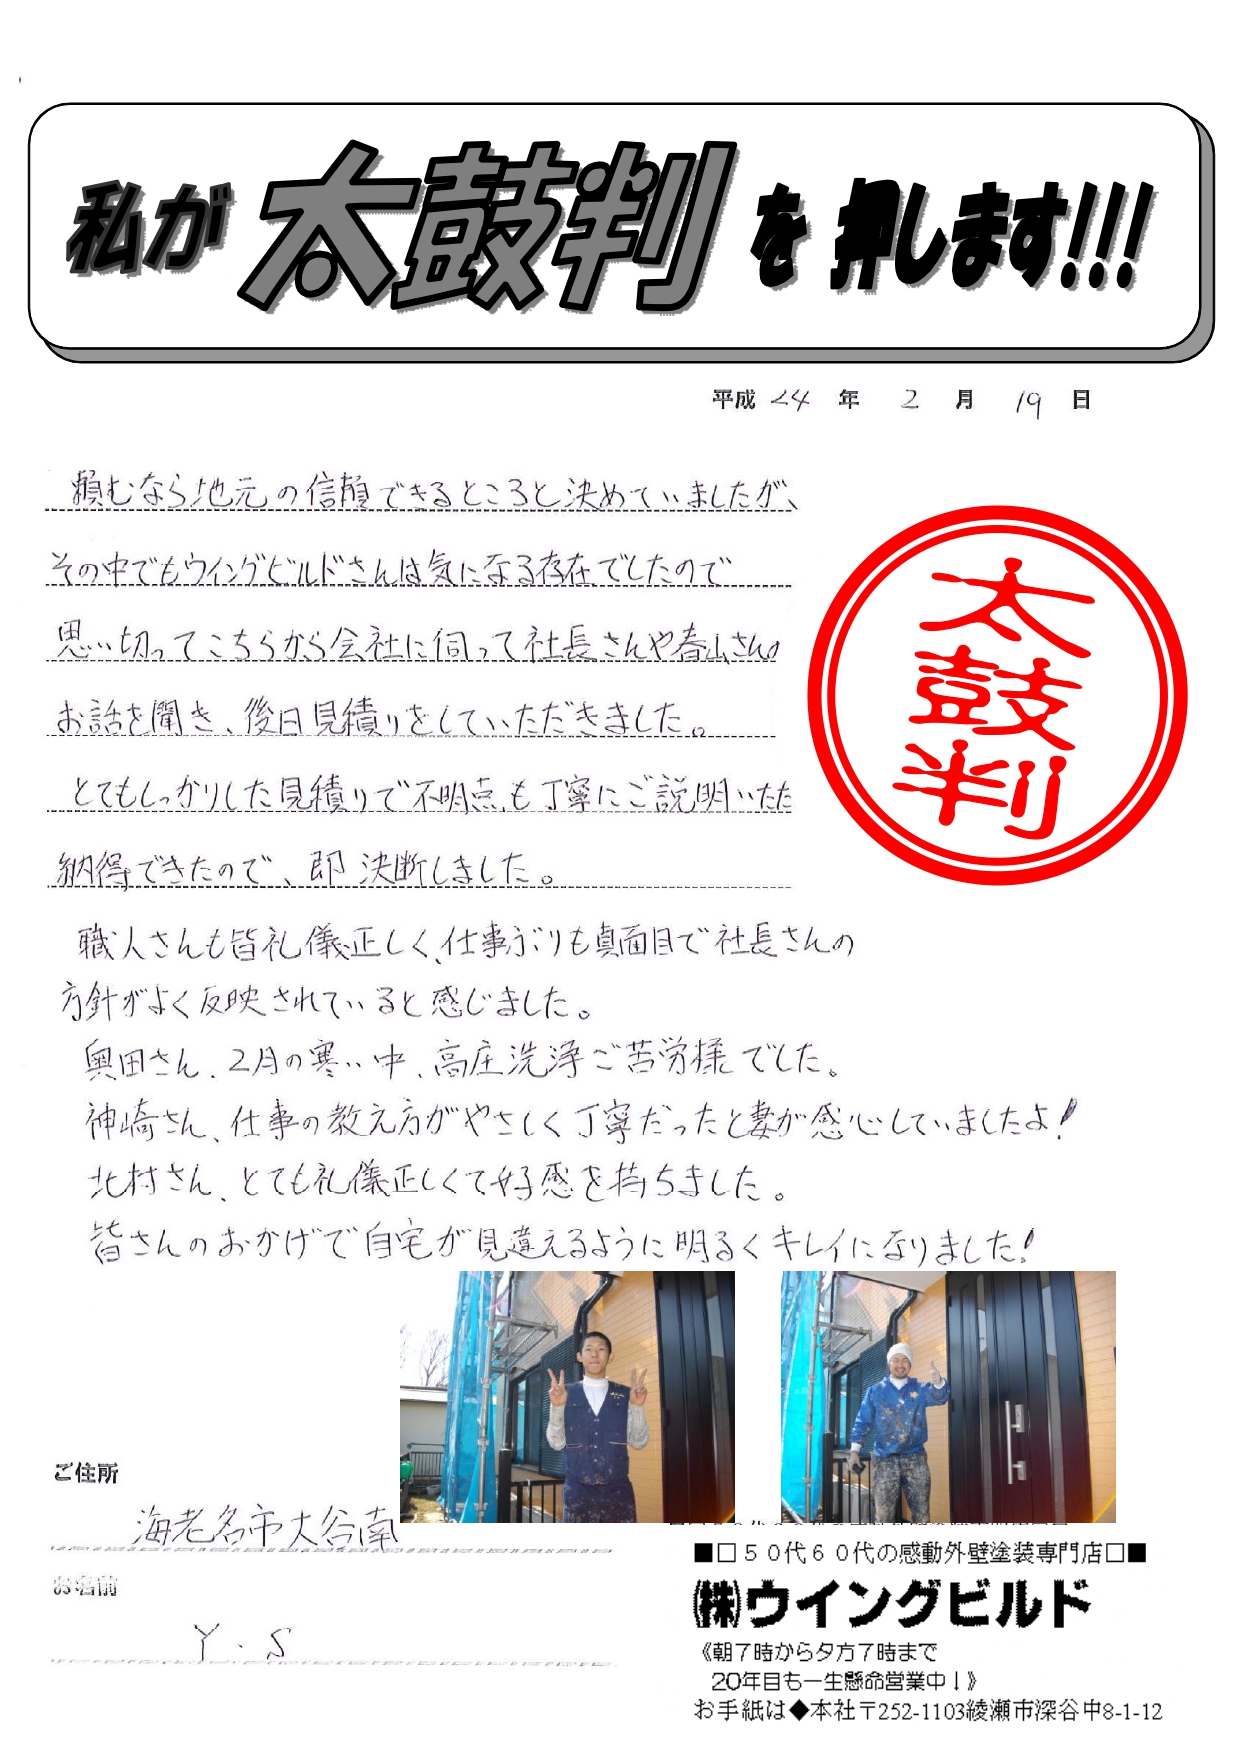 私が 太鼓判 を 押します!!!
平成 24 年 2 月 19 日
頼むなら地元の信頼できるところと決めていましたが、
その中でもウイングビルドさんは気になる存在でしたので
思い切ってこちらから会社に伺って社長さんや春山さんの
お話を聞き、後日見積りをしていただきました。
とてもしっかりした見積りで不明点も丁寧にご説明いただ
納得できたので、即決断しました。
太鼓判
職人さんも皆礼儀正しく、仕事ぶりも真面目で社長さんの
方針がよく反映されていると感じました。
奥田さん、2月の寒い中、高圧洗浄ご苦労様でした。
神崎さん、仕事の教え方がやさしく丁寧だったと妻が感心していましたよ!
北村さん、とても礼儀正しくて好感を持ちました。
皆さんのおかげで自宅が見違えるように明るくキレイになりました!
ご住所
海老名市大谷南
お名前
Y・S
■□50代60代の感動外壁塗装専門店□■
㈱ウイングビルド
《朝7時から夕方7時まで
20年目も一生懸命営業中!》
お手紙は◆本社〒252-1103綾瀬市深谷中8-1-12